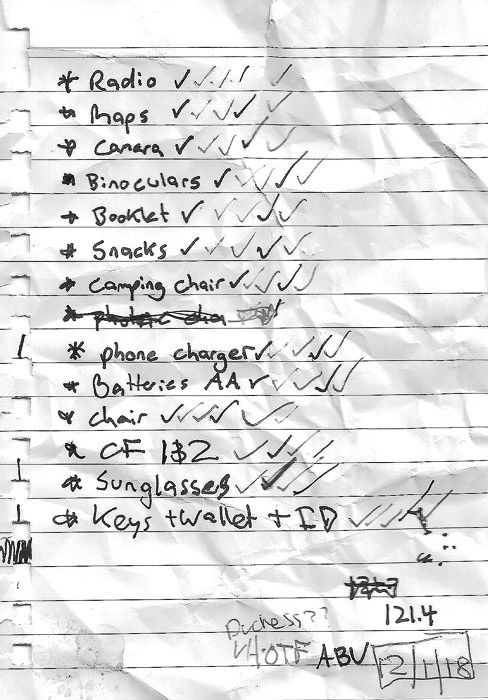 * Radio ✓✓✓✓ ✓
* Maps ✓✓✓✓ ✓
* Camera ✓✓✓✓ ✓
* Binoculars ✓✓✓✓✓
* Booklet ✓ ✓✓✓✓
* Snacks ✓✓✓✓✓
* Camping chair ✓✓✓✓✓
* phone charger ✓✓✓✓✓
* Batteries AA ✓✓✓✓✓
* chair ✓✓✓✓ ✓✓
* CF 1&2 ✓✓✓✓
* Sunglasses ✓✓✓✓
* Keys + Wallet + ID ✓✓✓✓✓
121.4
Duchess??
VH-OTF ABV 12/1/18